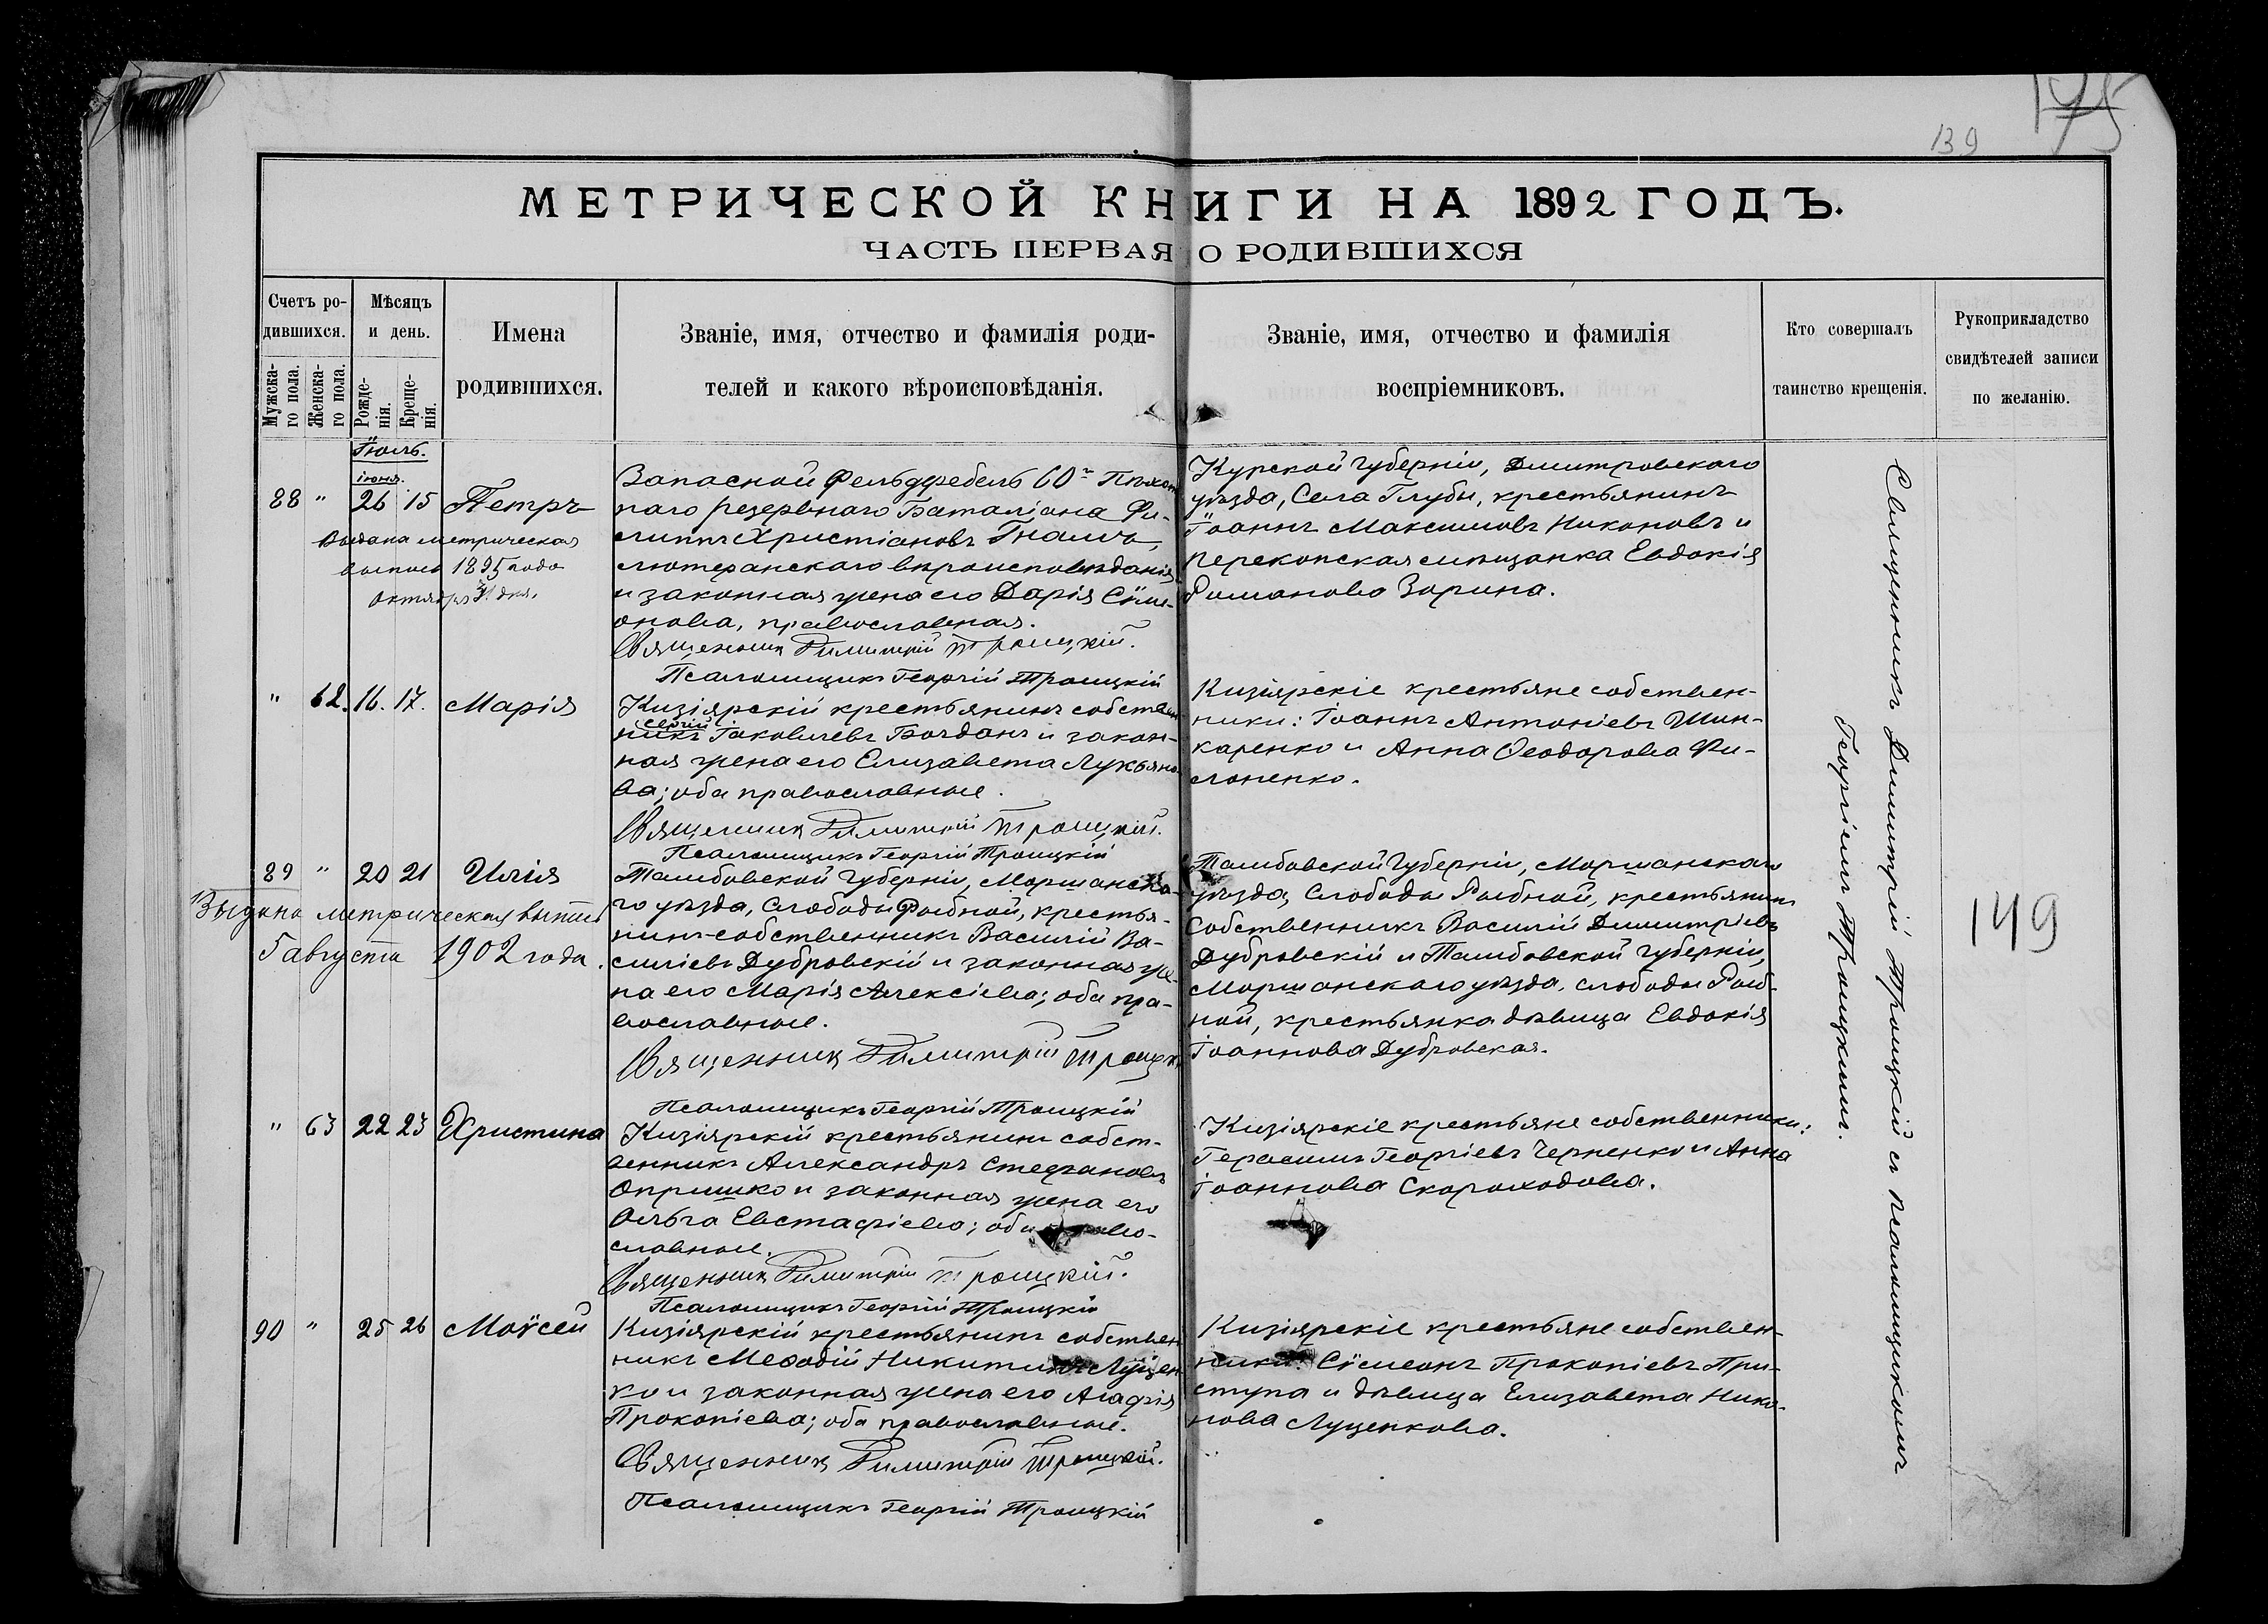 175
139
МЕТРИЧЕСКОЙ КНИГИ НА 1892 ГОДЪ.
ЧАСТЬ ПЕРВАЯ О РОДИВШИХСЯ
Счетъ ро-
дившихся.
Мужска-
го пола.
Женска-
го пола.
Мѣсяцъ
и день.
Рожде-
нія.
Креще-
нія.
Имена
родившихся.
Званіе, имя, отчество и фамилія роди-
телей и какого вѣроисповѣданія.
Званіе, имя, отчество и фамилія
воспріемниковъ.
Кто совершалъ
таинство крещенія.
Рукоприкладство
свидѣтелей записи
по желанію.
Іюль.
іюня.
88 " 26 15 Петръ
Выдана метрическая
выпись 1895 года
Октября дня.
Запасной Фельдфебель 60го Пѣхот
наго резервнаго Баталіона Фи-
липпъ Христіановъ
лютеранскаго вѣроисповѣданія
и законная жена его Дарія Сѵме-
онова, православная.
Священникъ Димитрій Троицкій.
Псаломщикъ Георгій Троицкій
Курской губерніи, Дмитровскаго
уѣзда, Села Глубы, крестьянинъ
Іоаннъ Максимовъ Никоновъ и
Перекопская мѣщанка Евдокія
Романова Зорина.
" 62. 16. 17. Марія
Кизіярскій крестьянинъ собствен
Сергій
никъ Іаковлевъ Богданъ и закон-
ная жена его Елизавета Лукьяно
ва; оба православные.
Священникъ Димитрій Троицкій.
Псаломщикъ Георгій Троицкій
Кизіярскіе крестьяне собствен-
ники: Іоаннъ Антоніевъ Шин-
каренко и Анна Ѳеодорова Фи-
лоненко.
89 " 20 21 Илія
Выдана метрическая выпись
5 августа 1902 года.
Тамбовской Губерніи, Моршанска-
го уѣзда, Слободы Рыбной, крестья-
нинъ-собственникъ Василій Ва-
силіевъ Дубровскій и законная же-
на его Марія Алексіева; оба пра-
вославные.
Священникъ Димитрій Троицкій
Псаломщикъ Георгій Троицкій
Тамбовской Губерніи, Моршанскаго
уѣзда, Слободы Рыбной, крестьянинъ
Собственникъ Василій Димитріевъ
Дубровскій и Тамбовской губерніи,
Моршанскаго уѣзда, слободы Рыб-
ной, крестьянка дѣвица Евдокія
Іоаннова Дубровская.
" 63 22 23 Христина
Кизіярскій крестьянинъ собст-
венникъ Александръ Стефановъ
Опришко и законная жена его
Ольга Евстафіева; оба право-
славные.
Священникъ Димитрій Троицкій.
Псаломщикъ Георгій Троицкій
Кизіярскіе крестьяне собственники:
Герасимъ Георгіевъ Черненко и Анна
Іоаннова Скороходова.
90 " 25 26 Моѵсей
Кизіярскій крестьянинъ собствен
никъ Меѳодій Никитинъ Луцен
ко и законная жена его Агафія
Прокопіева; оба православные.
Священникъ Димитрій Троицкій.
Псаломщикъ Георгій Троицкій
Кизіярскіе крестьяне собствен-
ники: Сѵмеонъ Прокопіевъ При-
ступа и дѣвица Елизавета Нико-
нова Луценкова.
Священникъ Димитрій Троицкій съ псаломщикомъ
Георгіемъ Троицкимъ.
149